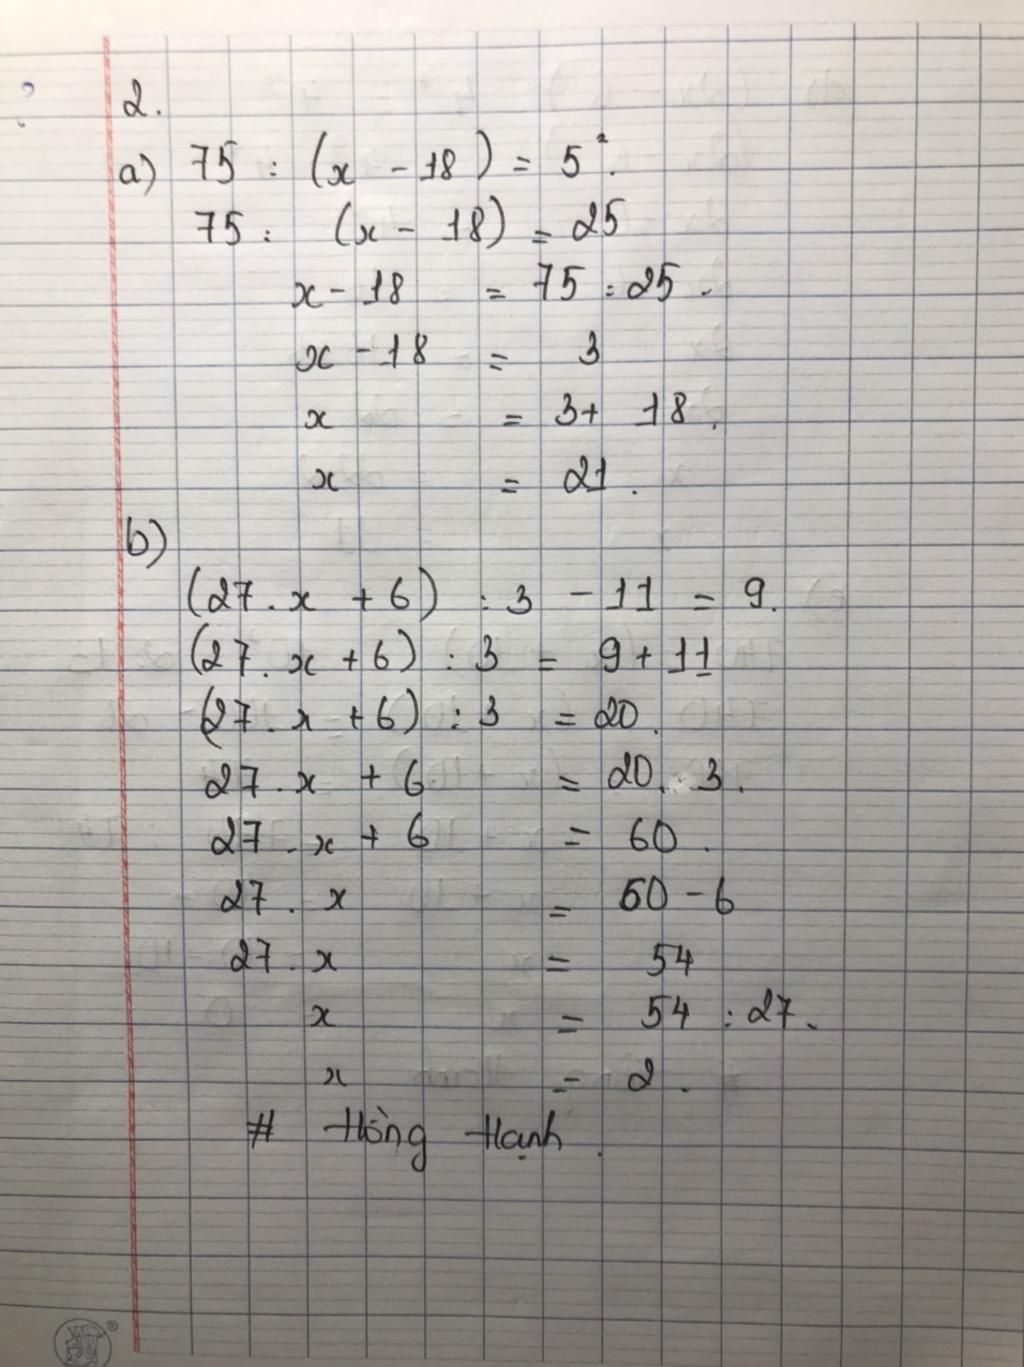 2.
a) 75 : (x - 18) = 5².
75 : (x - 18) = 25
x - 18 = 75 : 25.
x - 18 = 3
x = 3 + 18.
x = 21.
b)
(27.x + 6) : 3 - 11 = 9.
(27.x + 6) : 3 = 9 + 11
(27.x + 6) : 3 = 20.
27.x + 6 = 20.3.
27.x + 6 = 60.
27.x = 60 - 6
27.x = 54
x = 54 : 27.
x = 2.
# Hồng Hạnh.